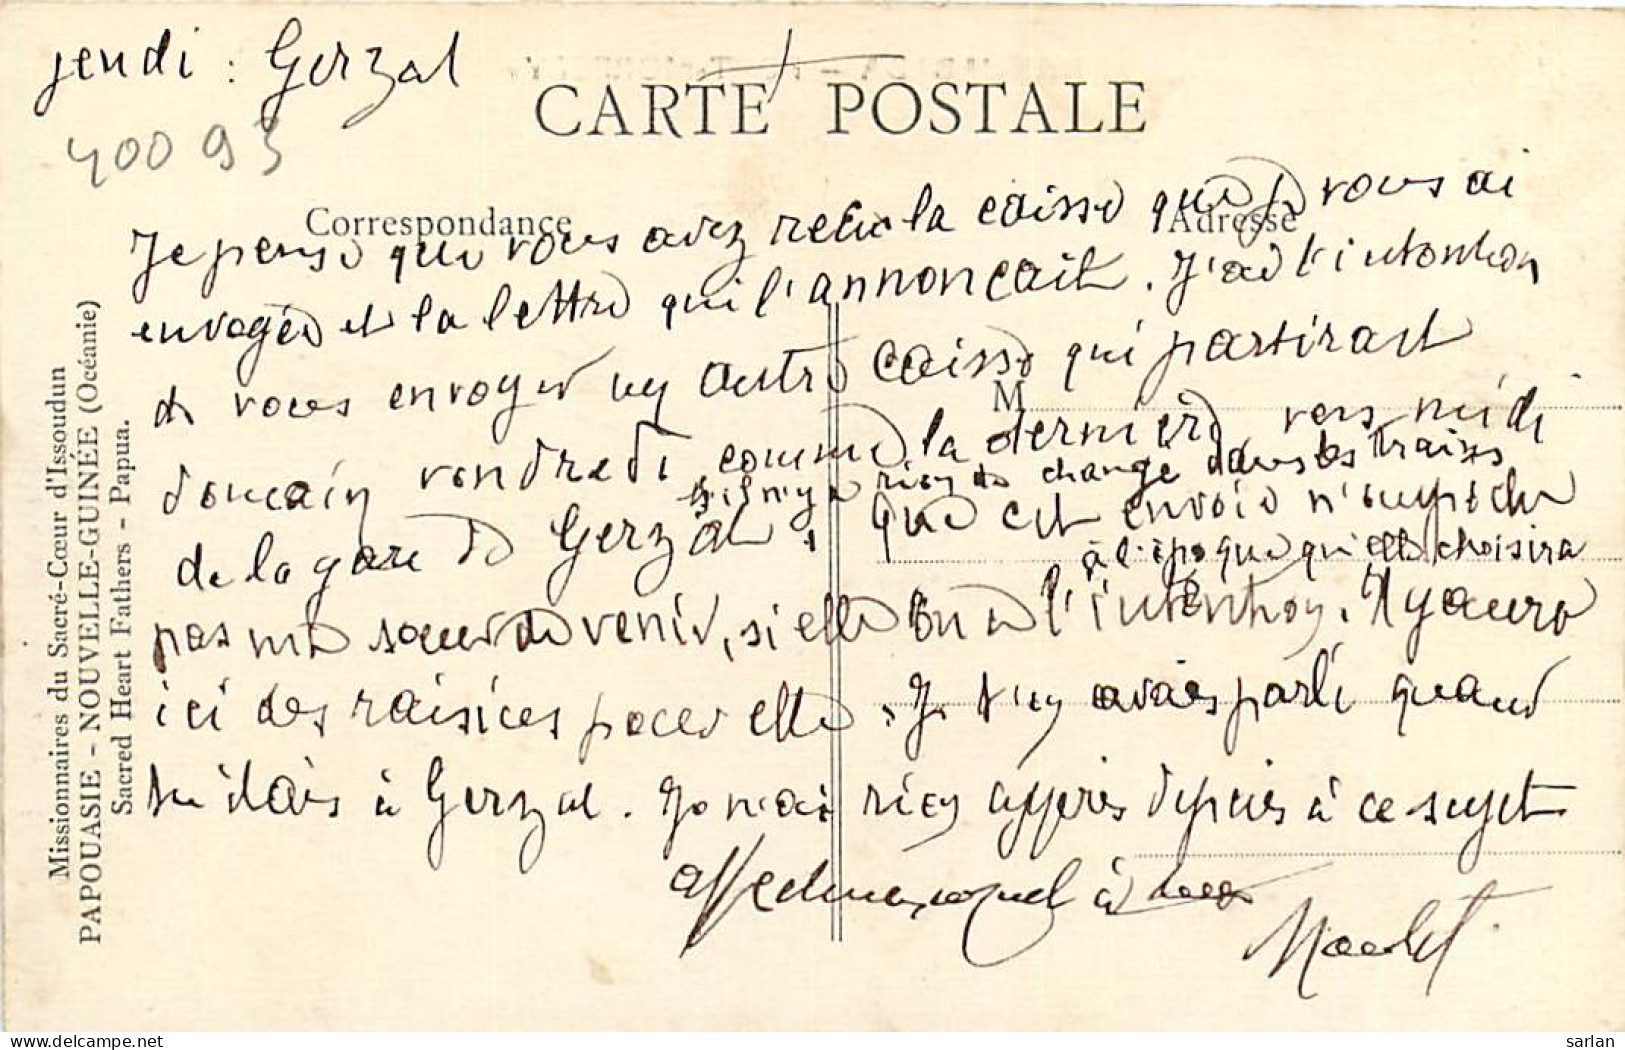 jeudi : Gerzat
CARTE POSTALE
40093
Correspondance
Adresse
Je pense que vous avez recu la caisse que je vous ai
envoyée et la lettre qui l'annonçait. J'ai l'intention
de vous envoyer un autre caisse qui partirait
M
demain vendredi comme la dernière vers midi
s'il n'y a rien de changé dans les trains
de la gare de Gerzat. Que cet envoie n'empêche
à l'époque qu'elle choisira
pas ma soeur de venir, si elle en a l'intention. Il y aura
ici des raisins pour elle. Je t'en avais parlé quand
tu étais à Gerzat. Je n'ai rien appris depuis à ce sujet
affectueusement à tous
Missionnaires du Sacré-Cœur d'Issoudun
PAPOUASIE - NOUVELLE-GUINÉE (Océanie)
Sacred Heart Fathers - Papua.
delcampe.net
sarlan